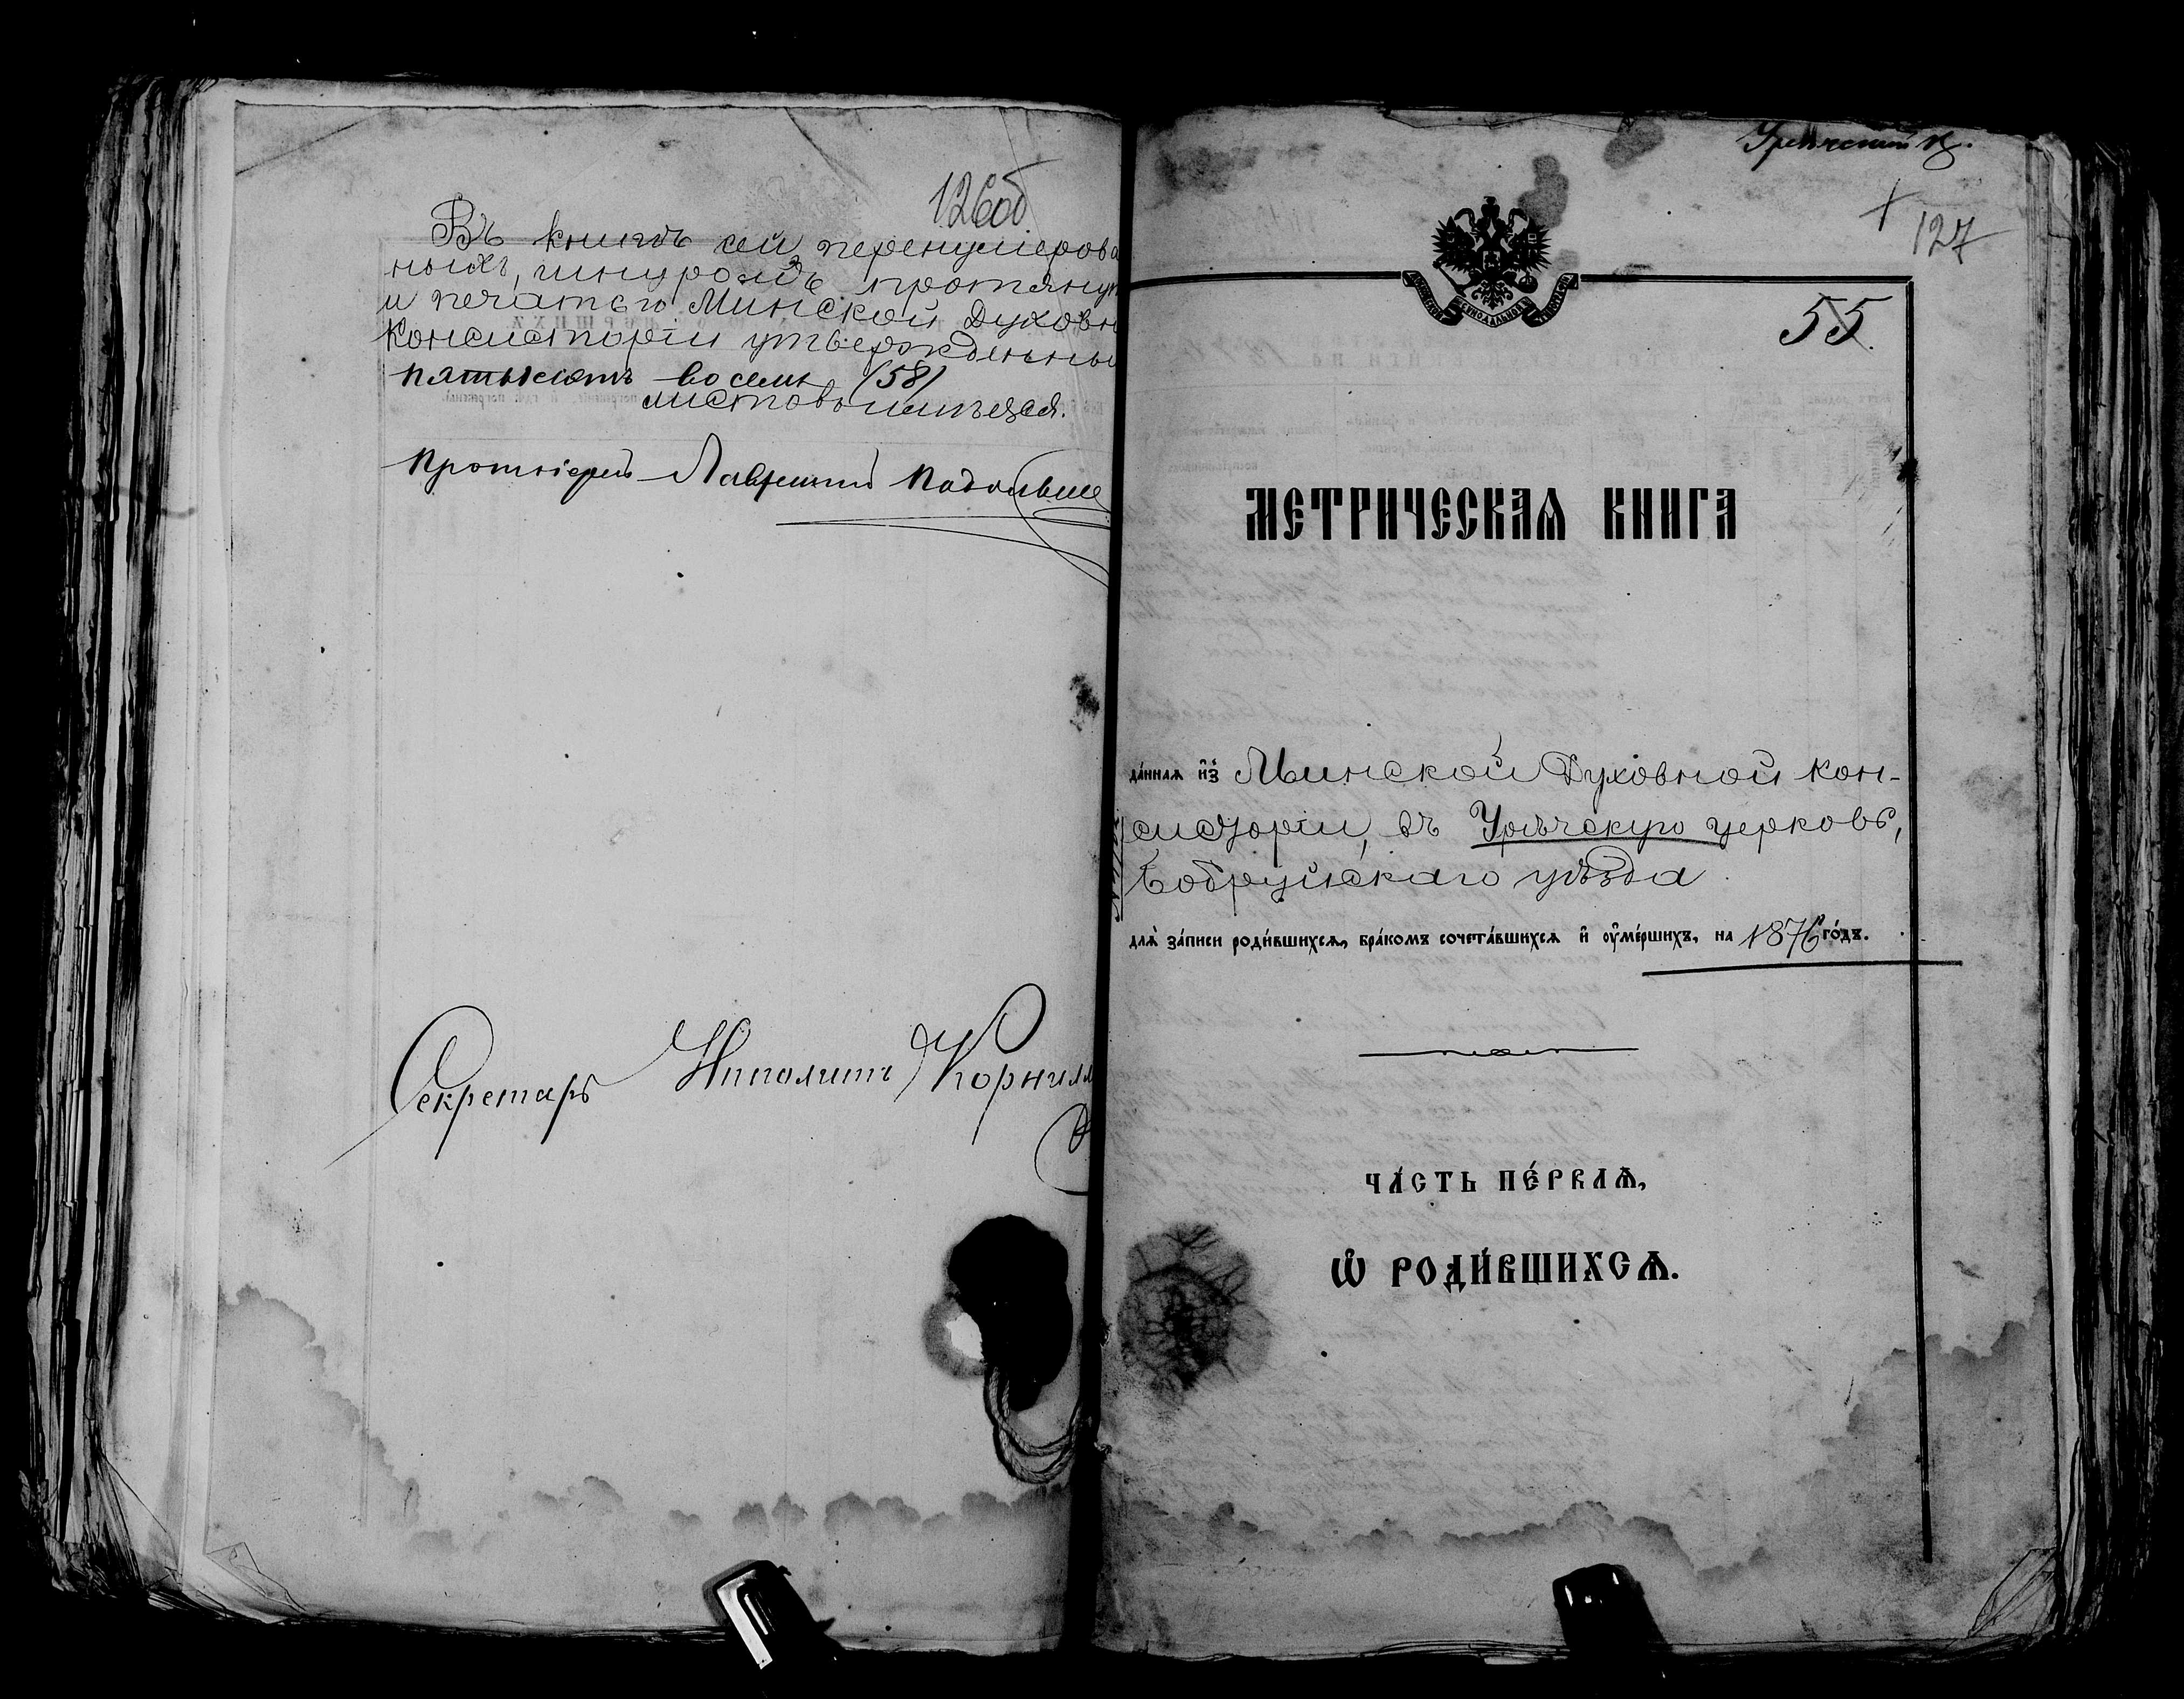 126об
Въ книгѣ сей перенумерова
ныхъ, шнуромъ протянут
и печатью Минской Духовн
Консисторіи утвержденны
пятьдесятъ восемь (58)
листовъ имѣется.
Протоіерей Лаврентій
Секретарь Ипполитъ Корнил
127
55
МЕТРИЧЕСКАѦ КНИГА
да́ннаѧ и҆з̾ Минской Духовной Кон-
систоріи, въ Урѣчскую церковь,
Бобруйскаго уѣзда
длѧ̀ за́писи роди́вшихсѧ, бра́комъ сочета́вшихсѧ и҆ ᲂу҆ме́ршихъ, на 1876 го́дъ.
ЧА́СТЬ ПЕ́РВАѦ,
Ѽ РОДИ́ВШИХСѦ.